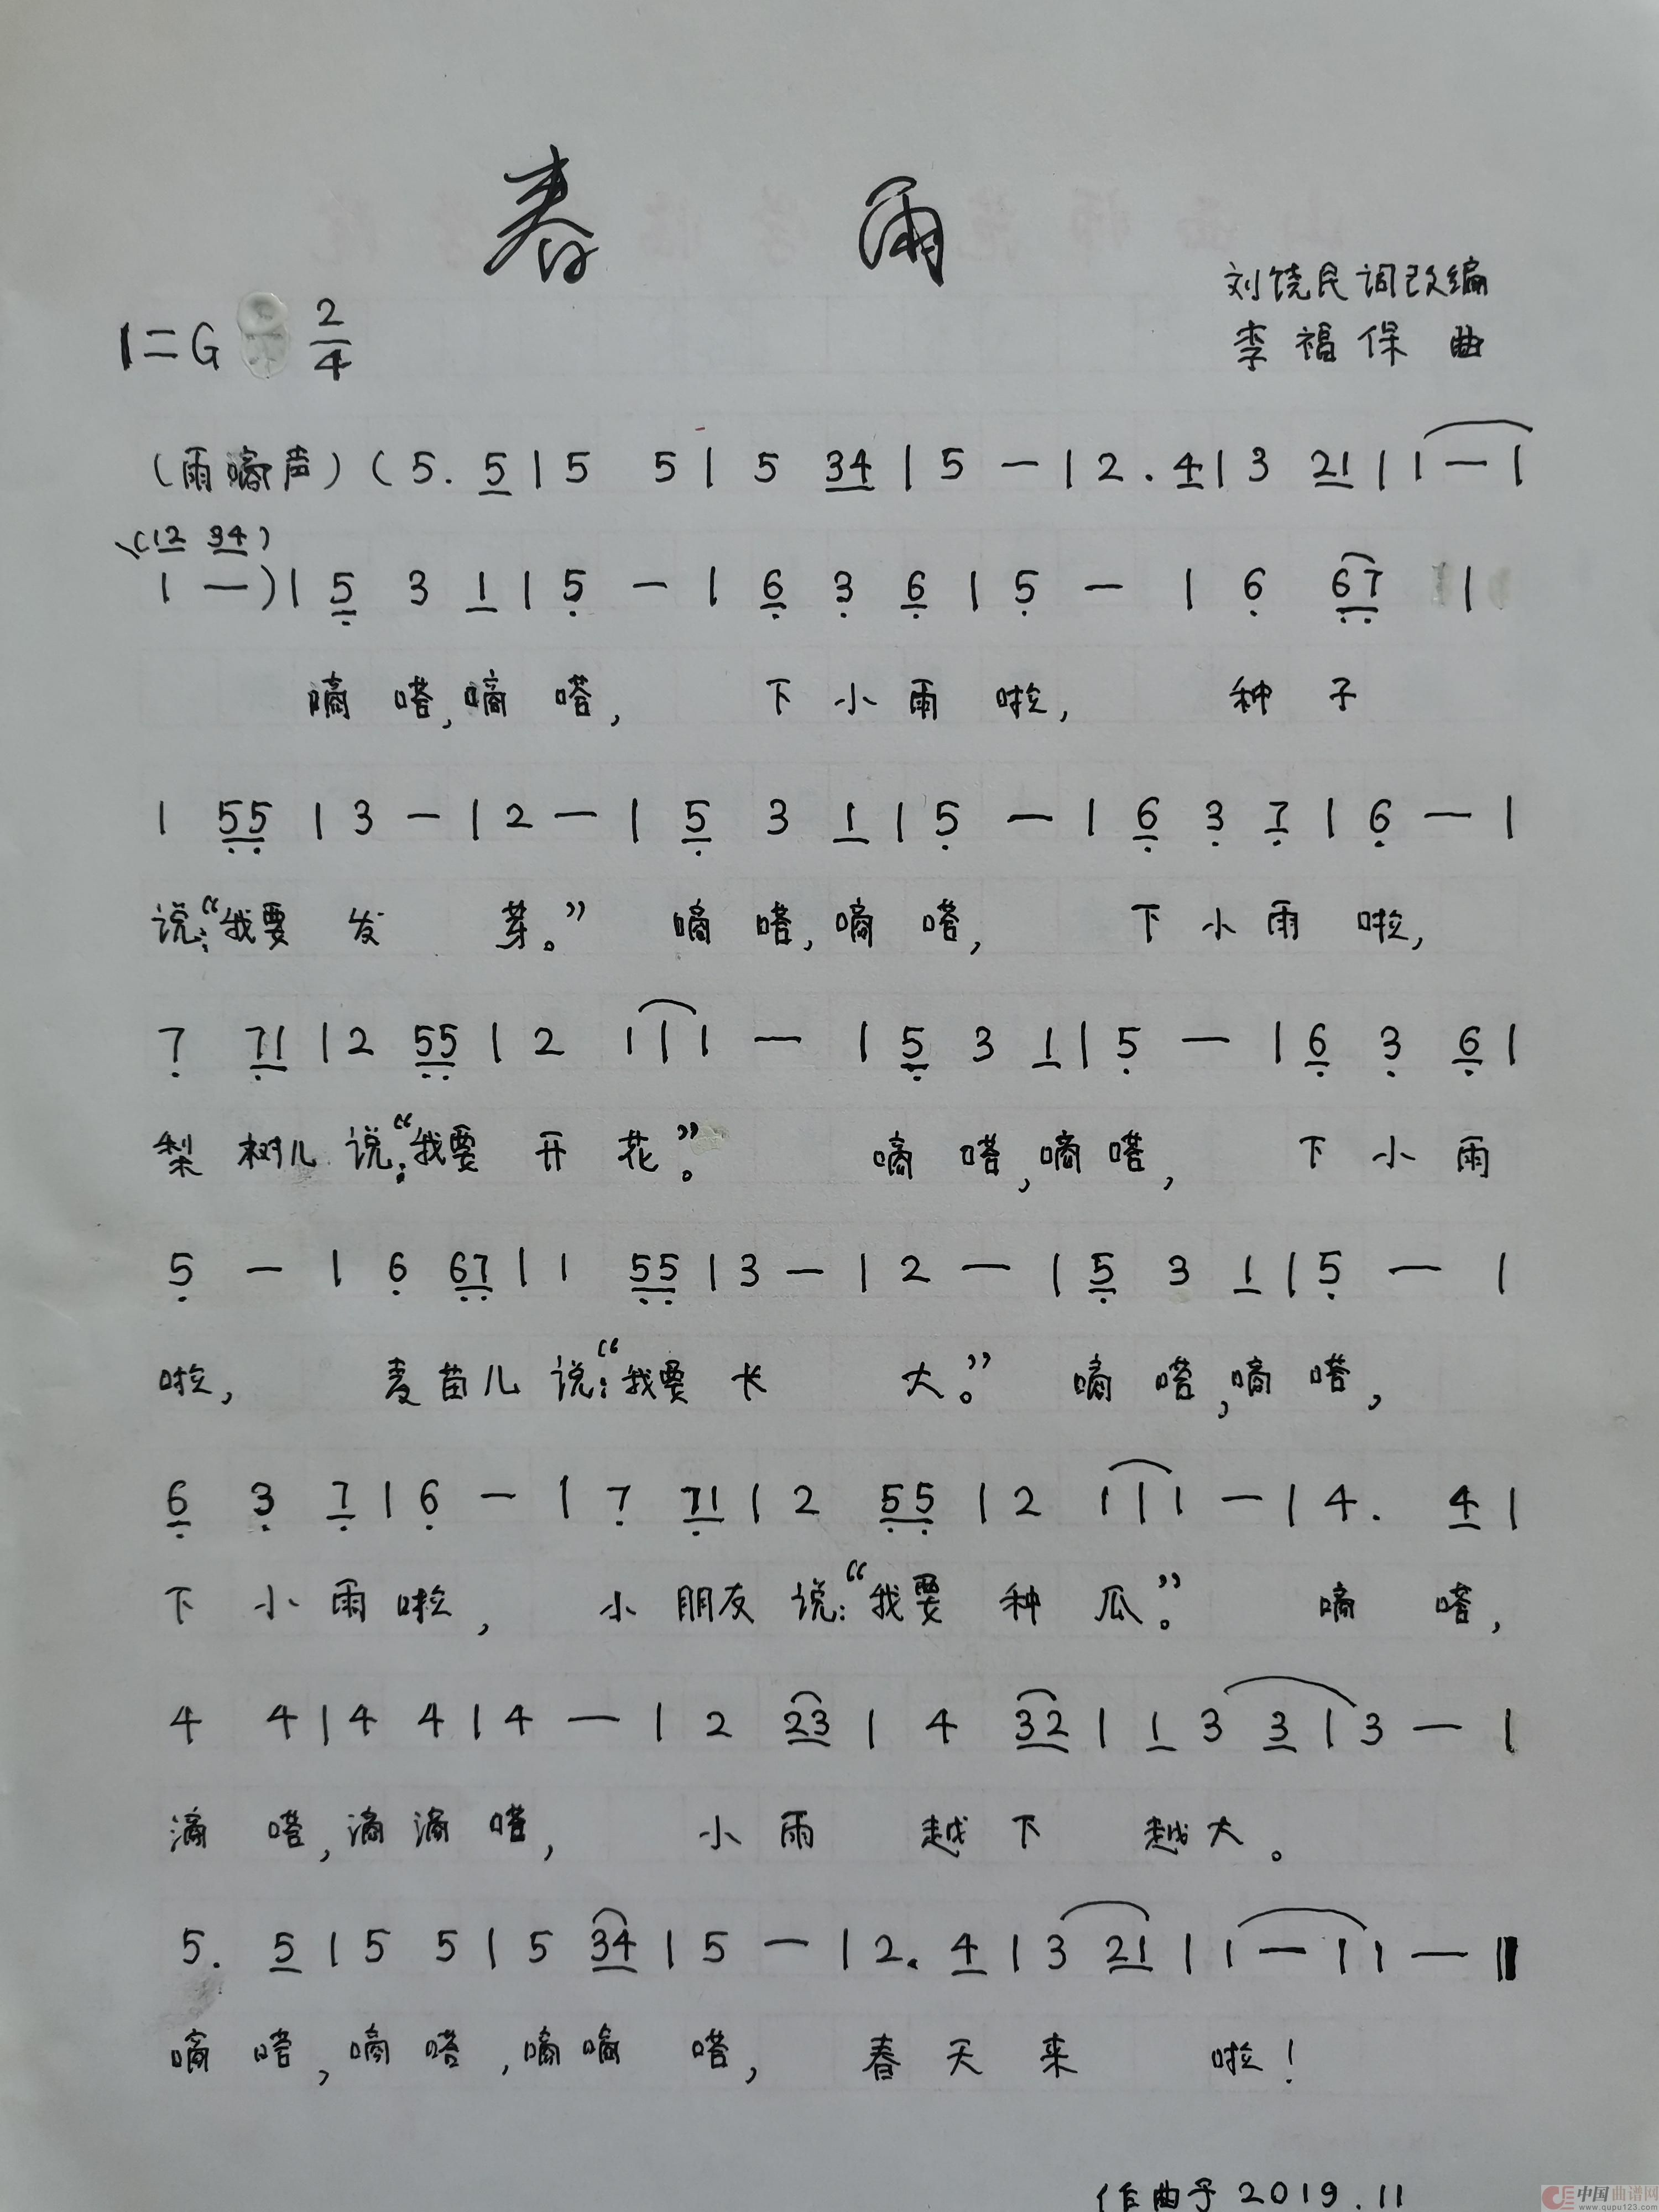 春 雨
刘饶民词改编
1=G 2/4
李福保 曲
(雨嘀声) (5. 5 | 5 5 | 5 34 | 5 — | 2. 4 | 3 21 | 1 — |
(12 34)
1 —) | 5 3 1 | 5 — | 6 3 6 | 5 — | 6 67 |
嘀 嗒,嘀 嗒, 下 小 雨 啦, 种 子
1 55 | 3 — | 2 — | 5 3 1 | 5 — | 6 3 7 | 6 — |
说:“我要 发 芽。” 嘀 嗒,嘀 嗒, 下 小 雨 啦,
7 71 | 2 55 | 2 1 | 1 — | 5 3 1 | 5 — | 6 3 6 |
梨 树儿 说:“我要 开 花”。 嘀 嗒,嘀 嗒, 下 小 雨
5 — | 6 67 | 1 55 | 3 — | 2 — | 5 3 1 | 5 — |
啦, 麦苗儿 说:“我要 长 大。” 嘀 嗒,嘀 嗒,
6 3 7 | 6 — | 7 71 | 2 55 | 2 1 | 1 — | 4. 4 |
下 小 雨 啦, 小 朋友 说:“我要 种 瓜。” 嘀 嗒,
4 4 | 4 4 | 4 — | 2 23 | 4 32 | 1 3 3 | 3 — |
滴 嗒,滴 滴 嗒, 小 雨 越 下 越大。
5. 5 | 5 5 | 5 34 | 5 — | 2. 4 | 3 21 | 1 — | 1 — ‖
嘀 嗒,嘀 嗒,嘀嘀 嗒, 春 天 来 啦!
作曲于2019.11
中国曲谱网
www.qupu123.com